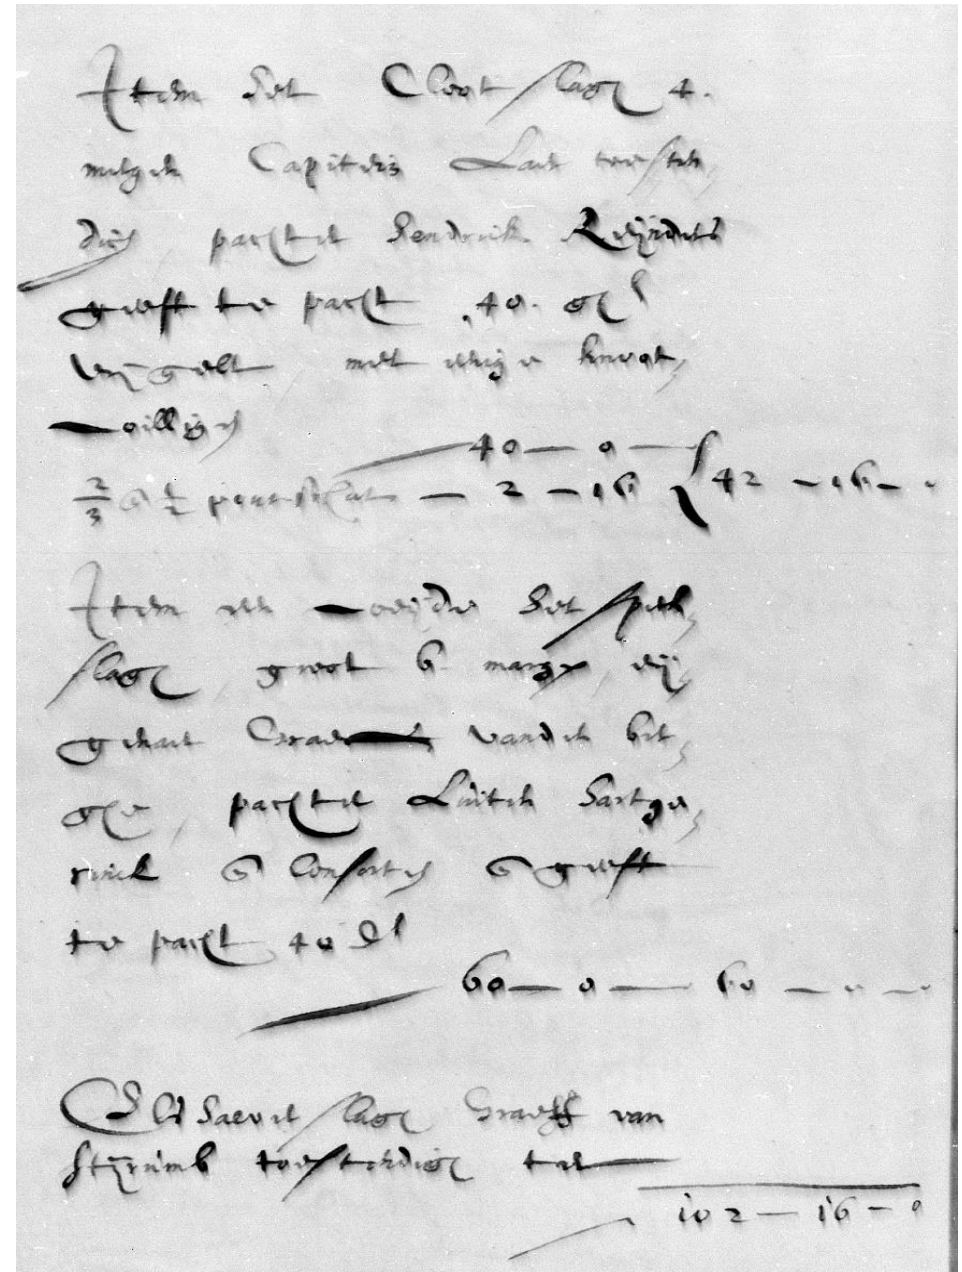 Item het Cloot slach 4.
mergen Capittels Lant toesten,
dich, pachter Hendrick Reijnders
geeft te pacht .40. gl
vrij gelt, met eenige knoot,
willigen
40 — 0 —
2/3 & 1/2 pont — 2 — 16 42 — 16 — 0
Item een weijde het speck,
slach, groot 6 margen, eij,
genaer vanden ber,
ghe, pachter Luiten Hartge,
rinck & Consorten & geeft
te pacht 40 Dl
60 — 0 — 60 — 0 — 0
slach Graeff van
Stijrumb toestendich
102 — 16 — 0